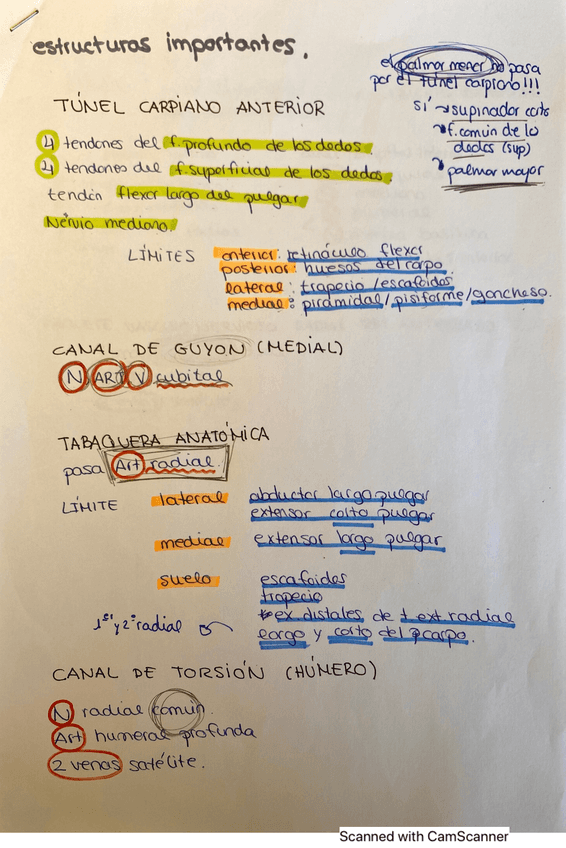 estructuras importantes.
el palmar menor no pasa
por el túnel carpiano!!!
SÍ → supinador corto
f.común de lo
dedos (sup)
palmar mayor
TÚNEL CARPIANO ANTERIOR
4 tendones del f.profundo de los dedos.
4 tendones del f.superficial de los dedos.
tendón flexor largo del pulgar
Nérvio mediano.
LÍMITES anterior: retináculo flexor
posterior: huesos del carpo.
lateral: trapecio/escafoides
medial: piramidal/pisiforme/ganchoso.
CANAL DE GUYON (MEDIAL)
N, ART, V cubital
TABAQUERA ANATÓMICA
pasa Art radial.
LÍMITE lateral abductor largo pulgar
extensor corto pulgar
medial extensor largo pulgar
suelo escafoides
trapecio
ex.distales de t.ext.radial
1º y 2º radial largo y corto del carpo.
CANAL DE TORSIÓN (HÚMERO)
N radial común.
Art humeral profunda
2 venas satélite.
Scanned with CamScanner